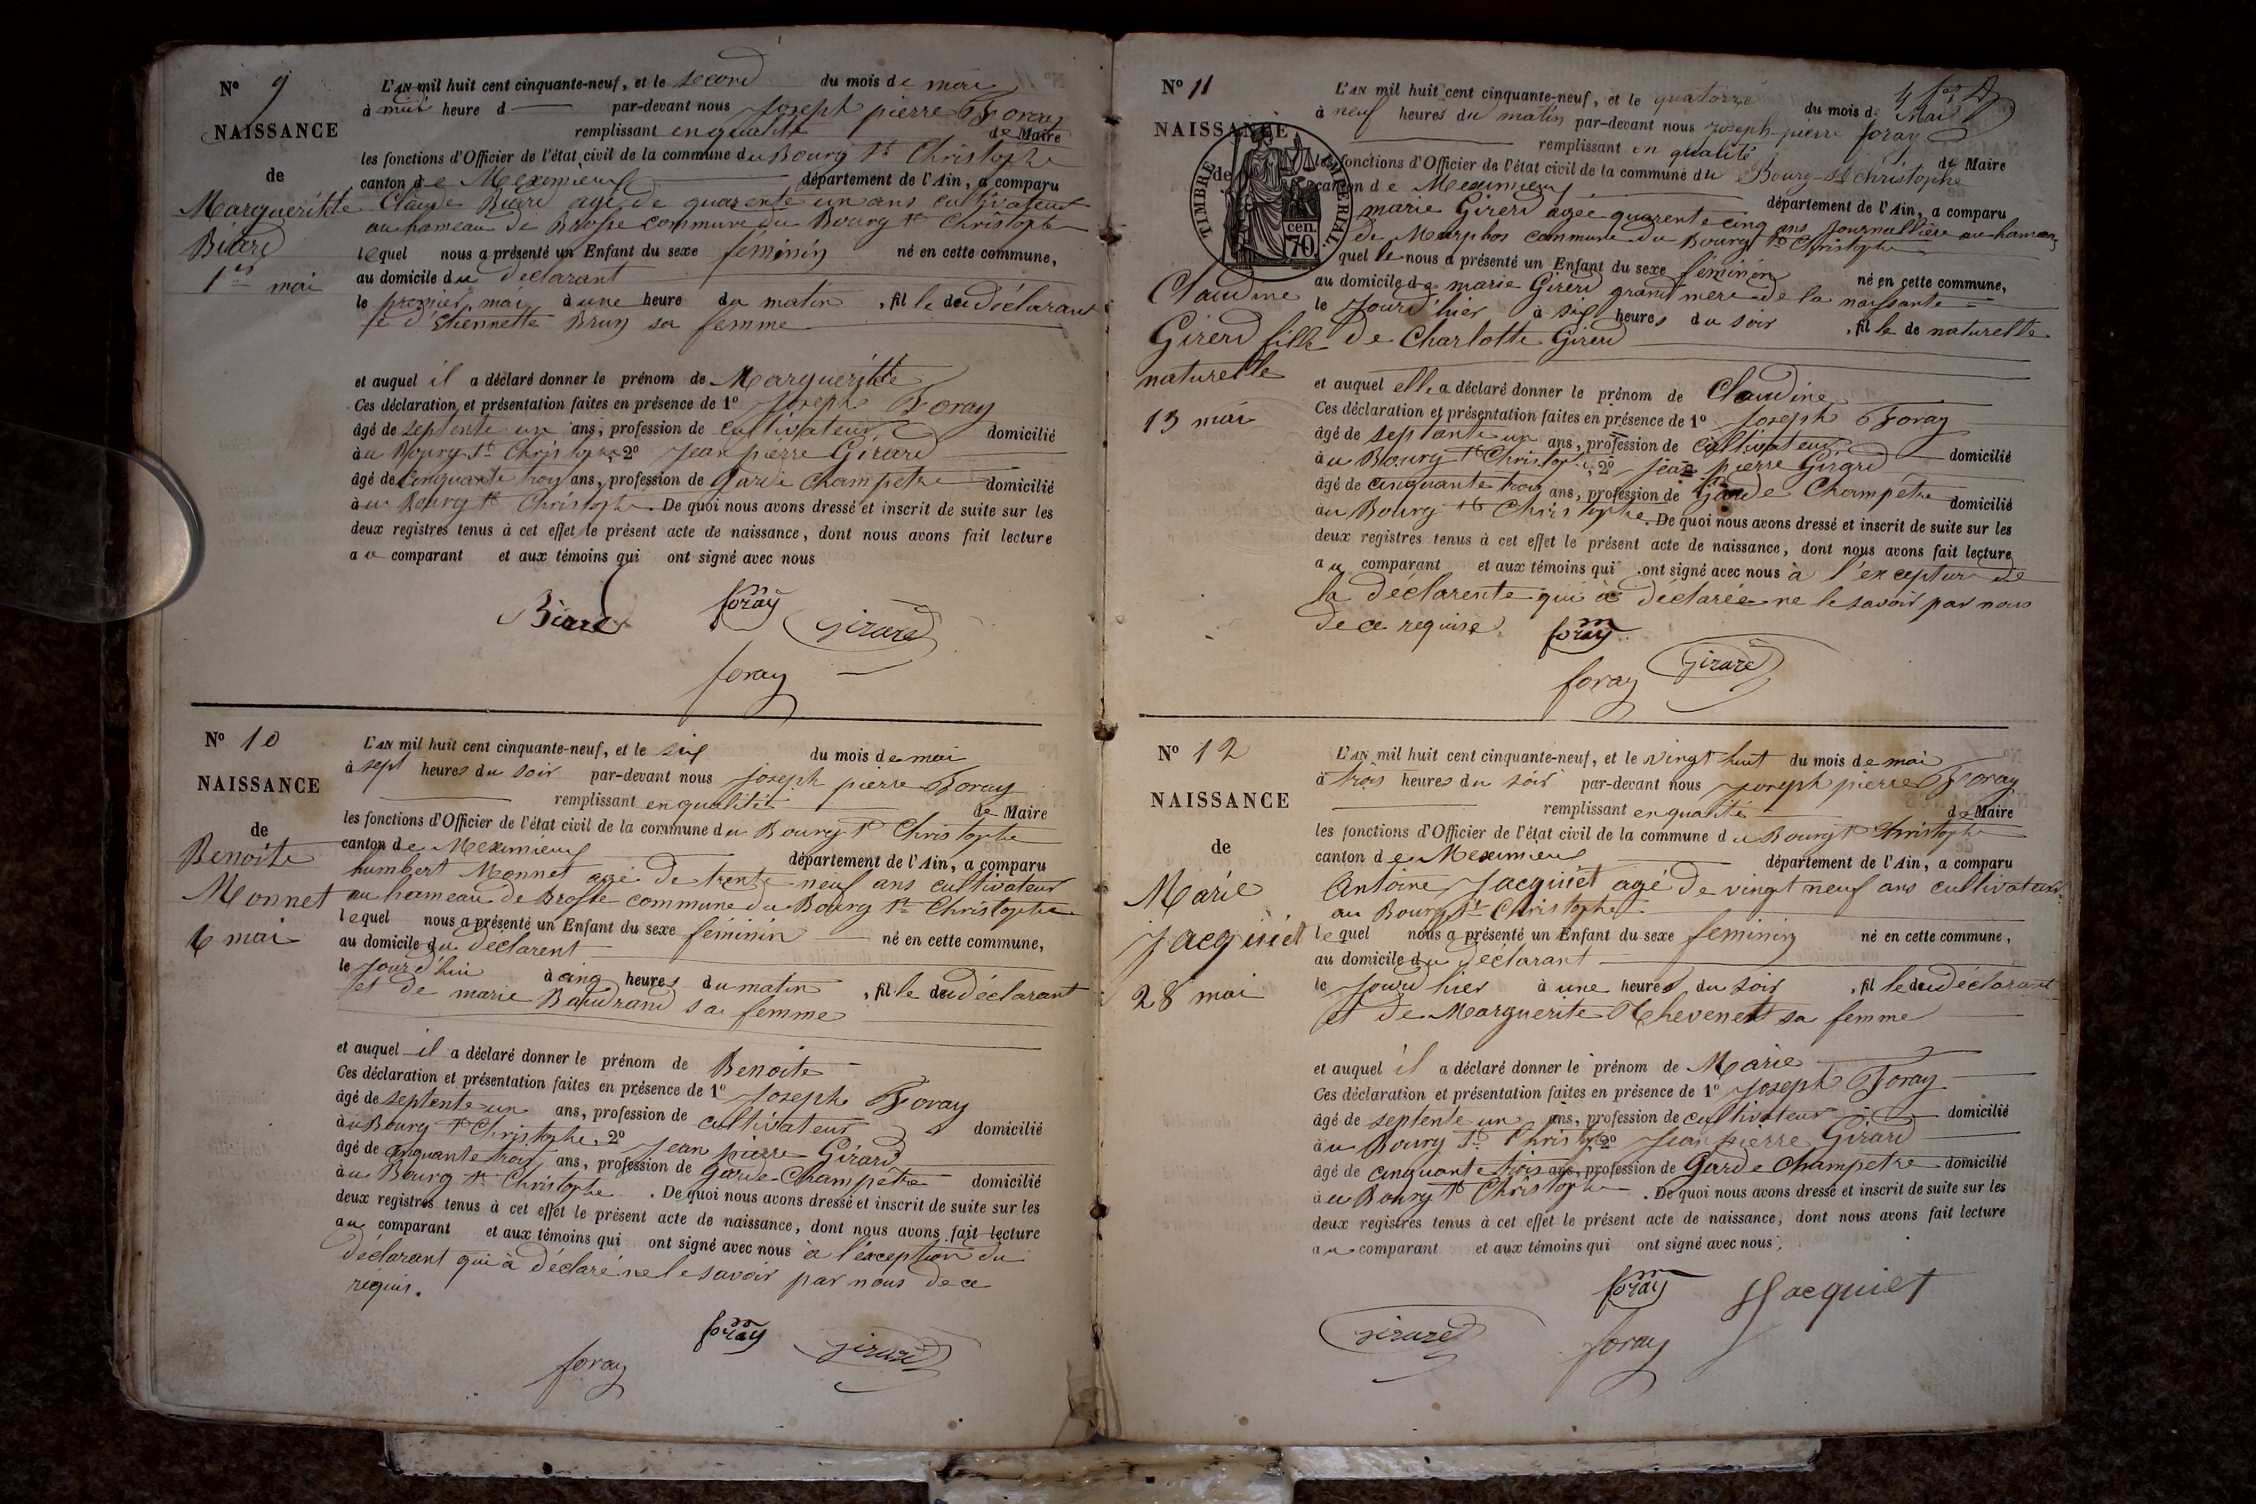 N° 9
NAISSANCE
de
Marguéritte
Biard
1er mai
L'AN mil huit cent cinquante-neuf, et le second du mois de mai
à midi heure d par-devant nous Joseph pierre Foray
remplissant en qualité de Maire
les fonctions d'Officier de l'état civil de la commune du Bourg St Christophe
canton de Meximieux département de l'Ain, a comparu
Claude Biard agé de quarente un ans cultivateur
au hameau de Brosse commune du Bourg St Christophe
lequel nous a présenté un Enfant du sexe féminin né en cette commune,
au domicile du déclarant
le premier mai à une heure du matin, fille du déclarant
et d'Etiennette Brun sa femme
et auquel il a déclaré donner le prénom de Marguéritte
Ces déclaration et présentation faites en présence de 1° Joseph Foray
âgé de septente un ans, profession de cultivateur domicilié
à au Bourg St Christophe, 2° Jean pierre Girard
âgé de Cinquante troy ans, profession de Garde Champetre domicilié
à au Bourg St Christophe. De quoi nous avons dressé et inscrit de suite sur les
deux registres tenus à cet effet le présent acte de naissance, dont nous avons fait lecture
au comparant et aux témoins qui ont signé avec nous
Biard foray Girard
foray
N° 10
NAISSANCE
de
Benoite
Monnet
6 mai
L'AN mil huit cent cinquante-neuf, et le six du mois de mai
à sept heures du soir par-devant nous Joseph pierre Foray
remplissant en qualité de Maire
les fonctions d'Officier de l'état civil de la commune du Bourg St Christophe
canton de Meximieux département de l'Ain, a comparu
humbert Monnet agé de trente neuf ans cultivateur
au hameau de Brosse commune du Bourg St Christophe
lequel nous a présenté un Enfant du sexe féminin né en cette commune,
au domicile du déclarent
le jour d'hui à cinq heures du matin, fille du déclarant
et de marie Baudrand sa femme
et auquel il a déclaré donner le prénom de Benoite
Ces déclaration et présentation faites en présence de 1° Joseph Foray
âgé de septente un ans, profession de cultivateur domicilié
à au Bourg St Christophe, 2° Jean pierre Girard
âgé de cinquante trois ans, profession de garde Champetre domicilié
à au Bourg St Christophe. De quoi nous avons dressé et inscrit de suite sur les
deux registres tenus à cet effet le présent acte de naissance, dont nous avons fait lecture
au comparant et aux témoins qui ont signé avec nous à l'éxception du
déclarant qui à déclaré ne le savoir par nous de ce
réquis.
foray Girard
foray
N° 11
NAISSANCE
de
TIMBRE IMPÉRIAL
70 cen.
Claudine
Girerd fille
naturelle
13 mai
L'AN mil huit cent cinquante-neuf, et le quatorze du mois de Mai
à neuf heures du matin par-devant nous joseph-pierre foray
remplissant en qualité de Maire
les fonctions d'Officier de l'état civil de la commune du Bourg-St Christophe
canton de Meximieux département de l'Ain, a comparu
marie Girerd agée quarente cinq ans journallière au hameau
de Marphos commune du Bourg St Christophe
quelle nous a présenté un Enfant du sexe féminin né en cette commune,
au domicile de marie Girerd grand mère de la naissante
le jourd'hier à six heures du soir, fille de naturelle
de Charlotte Girerd
et auquel elle a déclaré donner le prénom de Claudine
Ces déclaration et présentation faites en présence de 1° Joseph Foray
âgé de septante un ans, profession de cultivateur domicilié
à au Bourg St Christophe, 2° jean pierre Girard
âgé de cinquante trois ans, profession de Garde Champétre domicilié
au Bourg St Christophe. De quoi nous avons dressé et inscrit de suite sur les
deux registres tenus à cet effet le présent acte de naissance, dont nous avons fait lecture
au comparant et aux témoins qui ont signé avec nous à l'exception de
la déclarente qui à déclarée ne le savoir par nous
de ce requise.
foray Girard
foray
N° 12
NAISSANCE
de
Marie
Jacquiet
28 mai
L'AN mil huit cent cinquante-neuf, et le vingt huit du mois de mai
à trois heures du soir par-devant nous Joseph pierre Foray
remplissant en qualité de Maire
les fonctions d'Officier de l'état civil de la commune du Bourg St Christophe
canton de Meximieux département de l'Ain, a comparu
Antoine Jacquiet agé de vingt neuf ans cultivateur
au Bourg St Christophe
lequel nous a présenté un Enfant du sexe feminin né en cette commune,
au domicile du déclarant
le jourd'hier à une heure du soir, fille du déclarant
et de Marguerite Thevenet sa femme
et auquel il a déclaré donner le prénom de Marie
Ces déclaration et présentation faites en présence de 1° Joseph Foray
âgé de septente un ans, profession de cultivateur domicilié
à au Bourg St Christophe 2° Jean pierre Girard
âgé de cinquante trois ans, profession de Garde Champetre domicilié
à au Bourg St Christophe. De quoi nous avons dressé et inscrit de suite sur les
deux registres tenus à cet effet le présent acte de naissance, dont nous avons fait lecture
au comparant et aux témoins qui ont signé avec nous.
foray Jacquiet
Girard foray